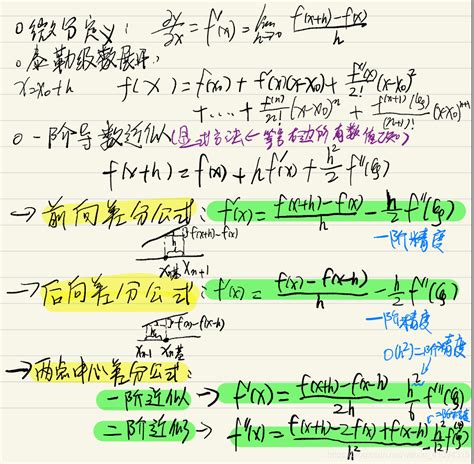 ○ 微分定义: ∂y/∂x = f'(x) = lim h→0 (f(x+h)-f(x))/h
○ 泰勒级数展开:
x=x₀+h f(x)=f(x₀)+f'(x)(x-x₀)+f''(x)/2! (x-x₀)²
+……+f⁽ⁿ⁾/n! (x-x₀)ⁿ + f⁽ⁿ⁺¹⁾(ξ)/(n+1)! (x-x₀)ⁿ⁺¹
○ 一阶导数近似(显式方法←等号右边所有数值已知)
f(x+h)=f(x)+hf'(x)+h²/2 f''(ξ)
→ 前向差分公式: f'(x)=(f(x+h)-f(x))/h - h/2 f''(ξ)
一阶精度
f(x+h)-f(x)
h
xₙ₊₁
→ 后向差分公式: f'(x)=(f(x)-f(x-h))/h - h/2 f''(ξ)
一阶精度
f(x)-f(x-h)
h
xₙ₋₁
O(h²)=二阶精度
→ 两点中心差分公式:
一阶近似 → f'(x)=(f(x+h)-f(x-h))/2h - h²/6 f''(ξ)
二阶近似 → f''(x)=(f(x+h)-2f(x)+f(x-h))/h² - h²/12 f''(ξ)